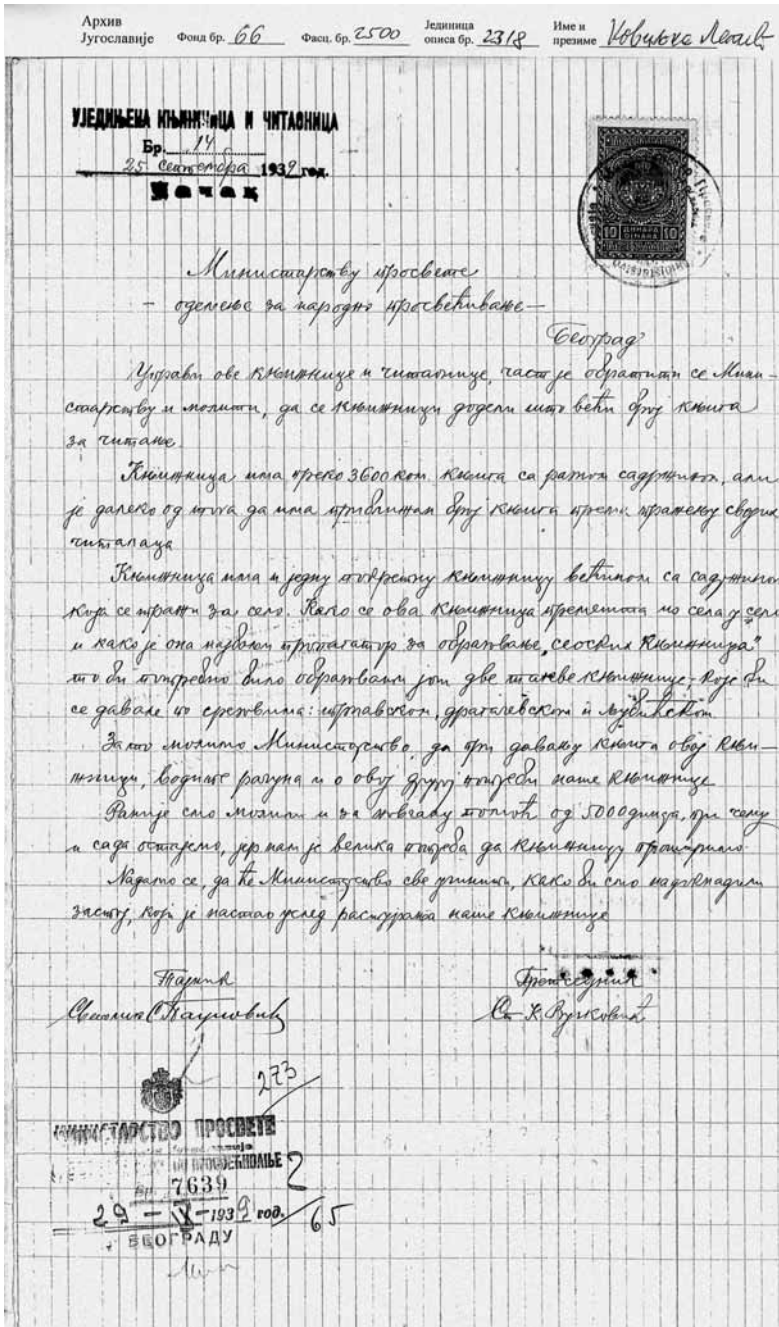 Архив
Југославије Фонд бр. 66 Фасц. бр. 2500 Јединица описа бр. 2318 Име и презиме
УЈЕДИЊЕНА КЊИЖНИЦА И ЧИТАОНИЦА
Бр. 14
25 септембра 1939 год.
Чачак
10 ДИНАРА 10
Министарству просвете
– одељење за народно просвећивање –
Београд
Управи ове књижнице и читаонице, част је обратити се Мини-
старству и молити, да се књижници додели што већи број књига
за читање.
Књижница има преко 3600 ком. књига са разном садржином, али
је далеко од тога да има приближан број књига према тражењу својих
читалаца
Књижница има и једну покретну књижницу већином са садржином
која се тражи за село. Како се ова књижница премешта из села у село
и како је она најбољи пропагатор за образовање „сеоских књижница"
то би потребно било образовати још две такве књижнице, које би
се давале по срезовима: трнавском, драгачевском и љубићском.
Зато молимо Министарство, да при давању књига овој књи-
жници, водите рачуна и о овој другој потреби наше књижнице
Раније смо молили и за новчану помоћ од 5000 динара, при чему
и сада остајемо, јер нам је велика потреба да књижницу проширимо.
Надамо се, да ће Министарство све учинити, како би смо надокнадили
застој, који је настао услед растурања наше књижнице
Тајник Претседник
Вучковић
273
МИНИСТАРСТВО ПРОСВЕТЕ
Бр. 7639 2
29 – IX – 1939 год. 65
БЕОГРАДУ